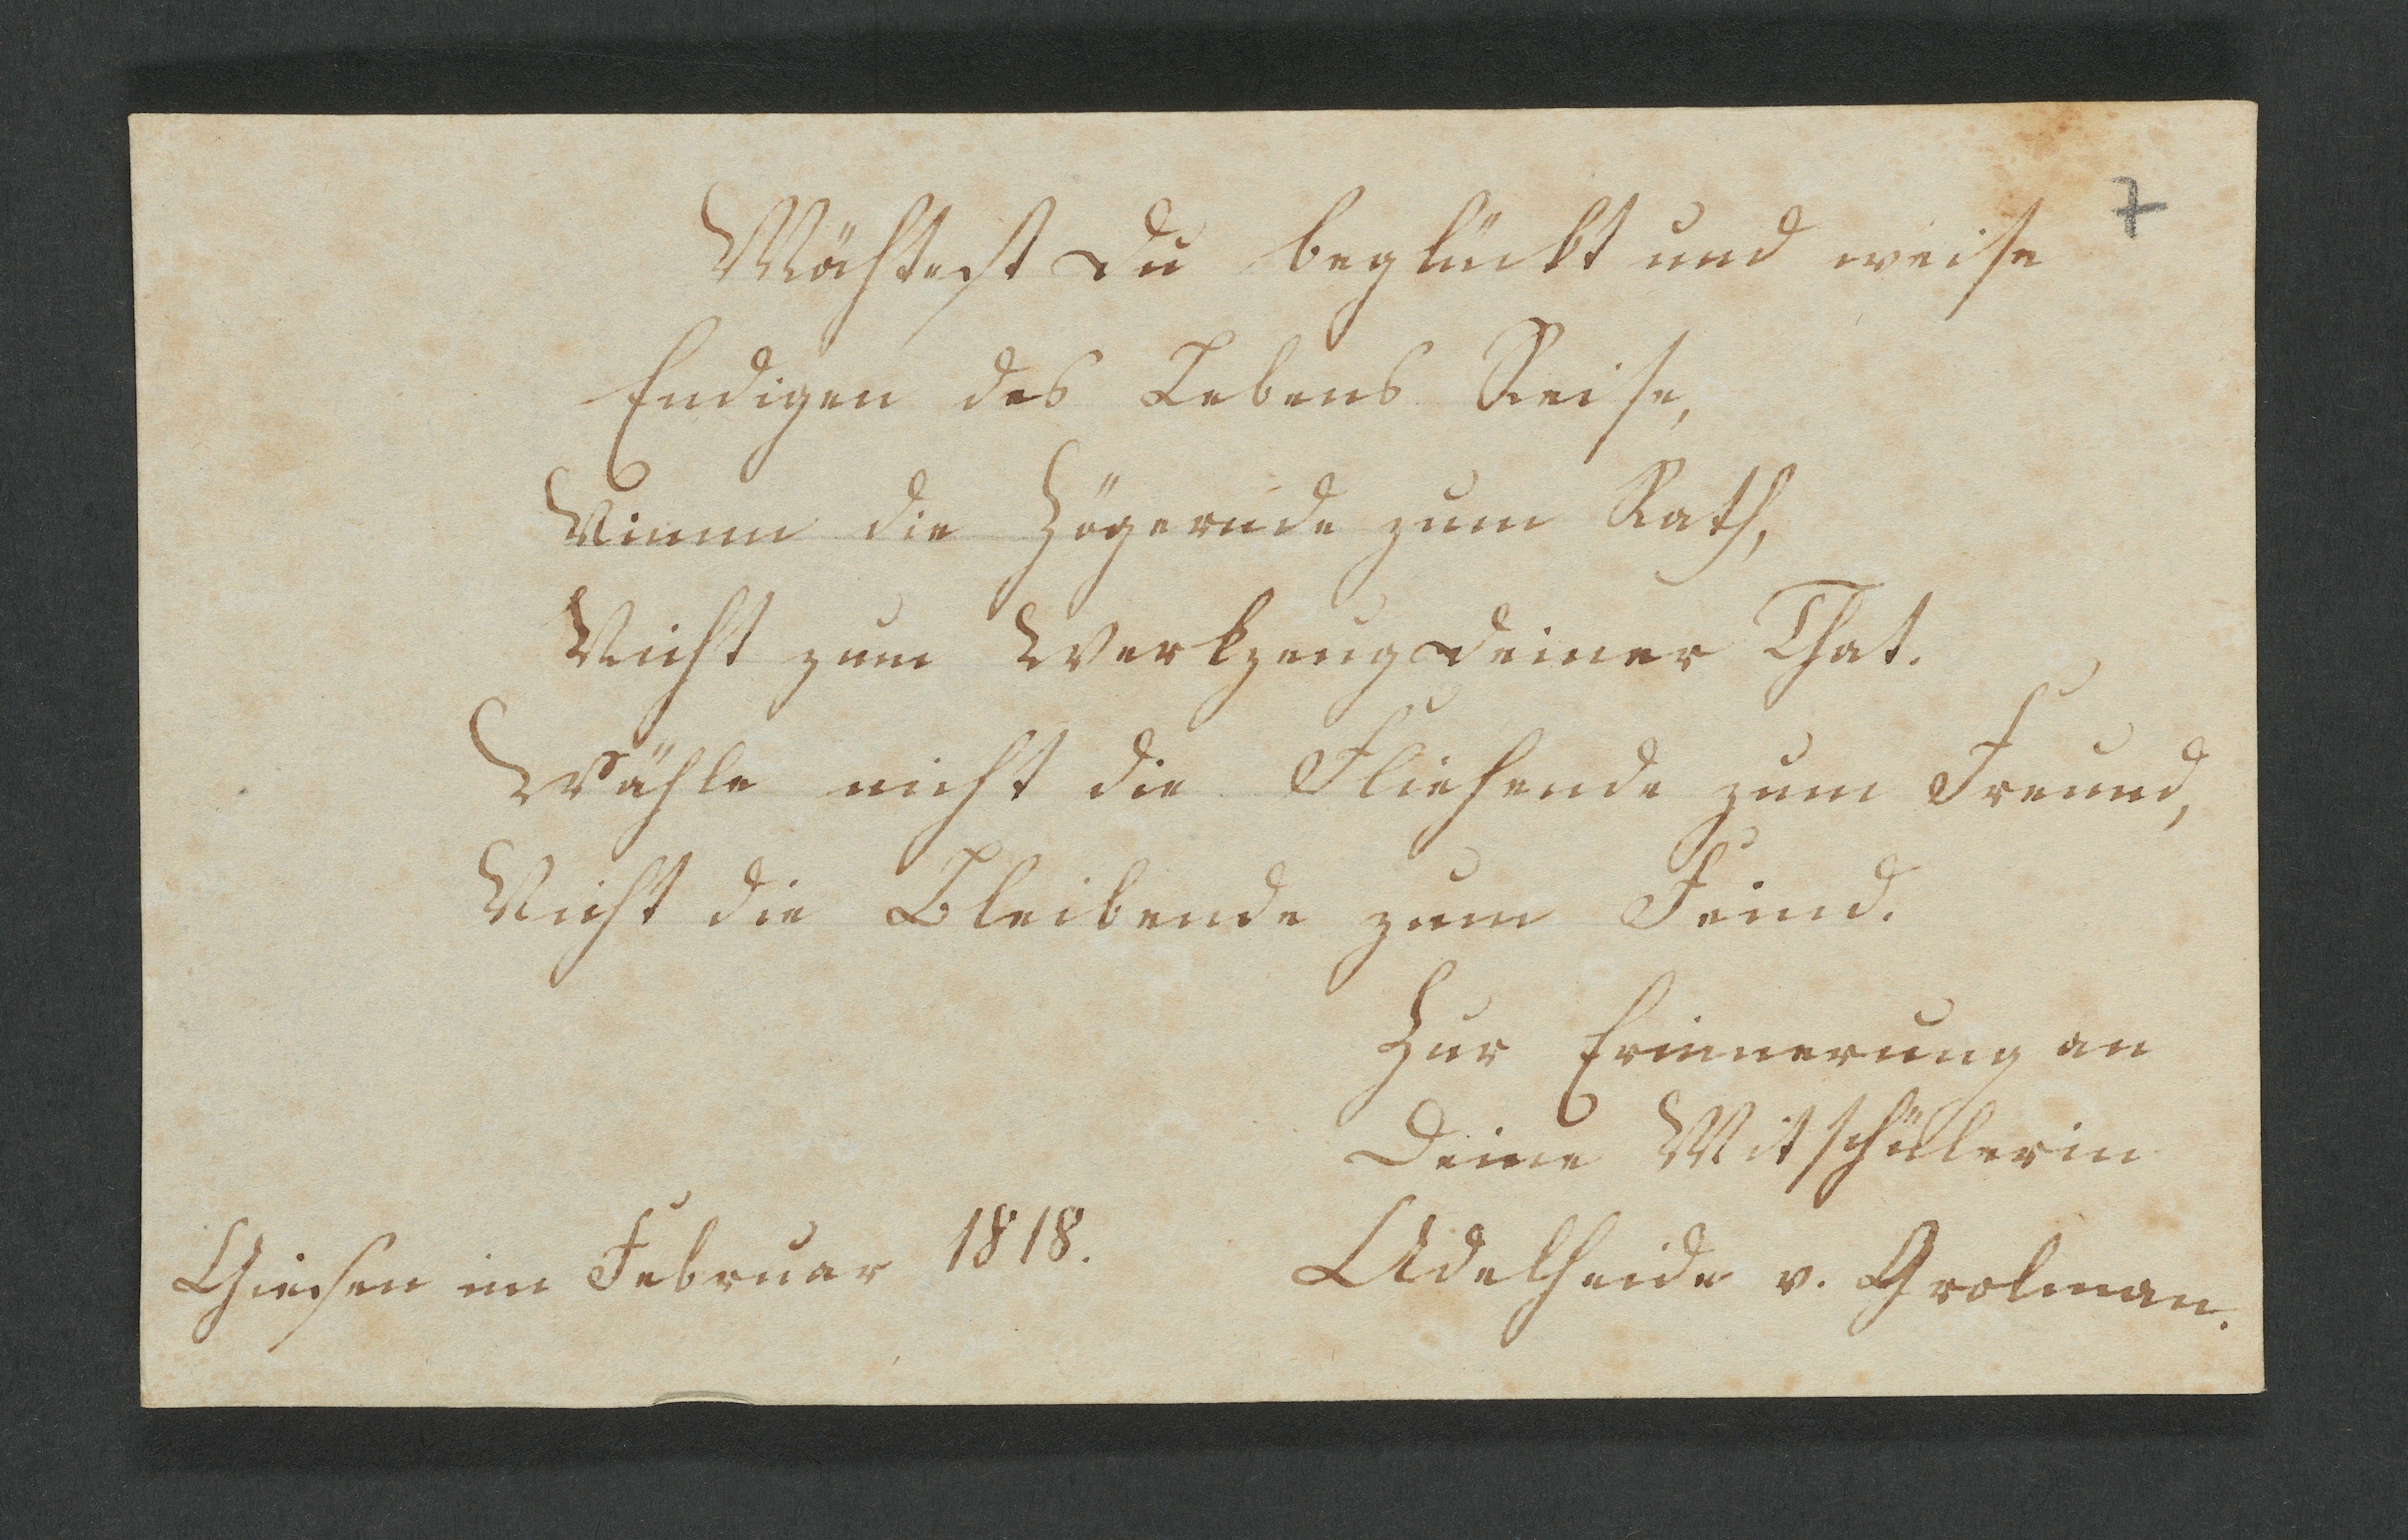 7
Möchtest Du beglückt und weise
Endigen des Lebens Reise,
Nimm die Zögernde zum Rath,
Nicht zum Werkzeug Deiner That.
Wähle nicht die Fliehende zum Freund,
Nicht die Bleibende zum Feind.
Zur Erinnerung an
Deine Mitschülerin
Giesen im Februar 1818. Adelheide v. Grolman.